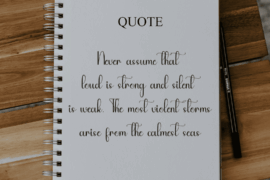 QUOTE
Never assume that
loud is strong and silent
is weak. The most violent storms
arise from the calmest seas